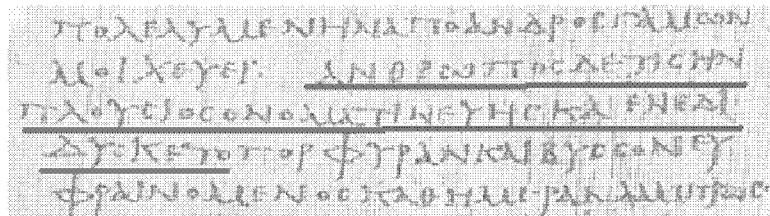 ΠΟΛΕΛΥΜΕΝΗΝΑΠΟΑΝΔΡΟϹΓΑΜΩΝ
ΜΟΙΧΕΥΕΙ ΑΝΘΡΩΠΟϹΔΕΤΙϹΗΝ
ΠΛΟΥϹΙΟϹΟΝΟΜΑΤΙΝΕΥΗϹΚΑΙΕΝΕΔΙ
ΔΥϹΚΕΤΟΠΟΡΦΥΡΑΝΚΑΙΒΥϹϹΟΝΕΥ
ΦΡΑΙΝΟΜΕΝΟϹΚΑΘΗΜΕΡΑΝΛΑΜΠΡΩϹ